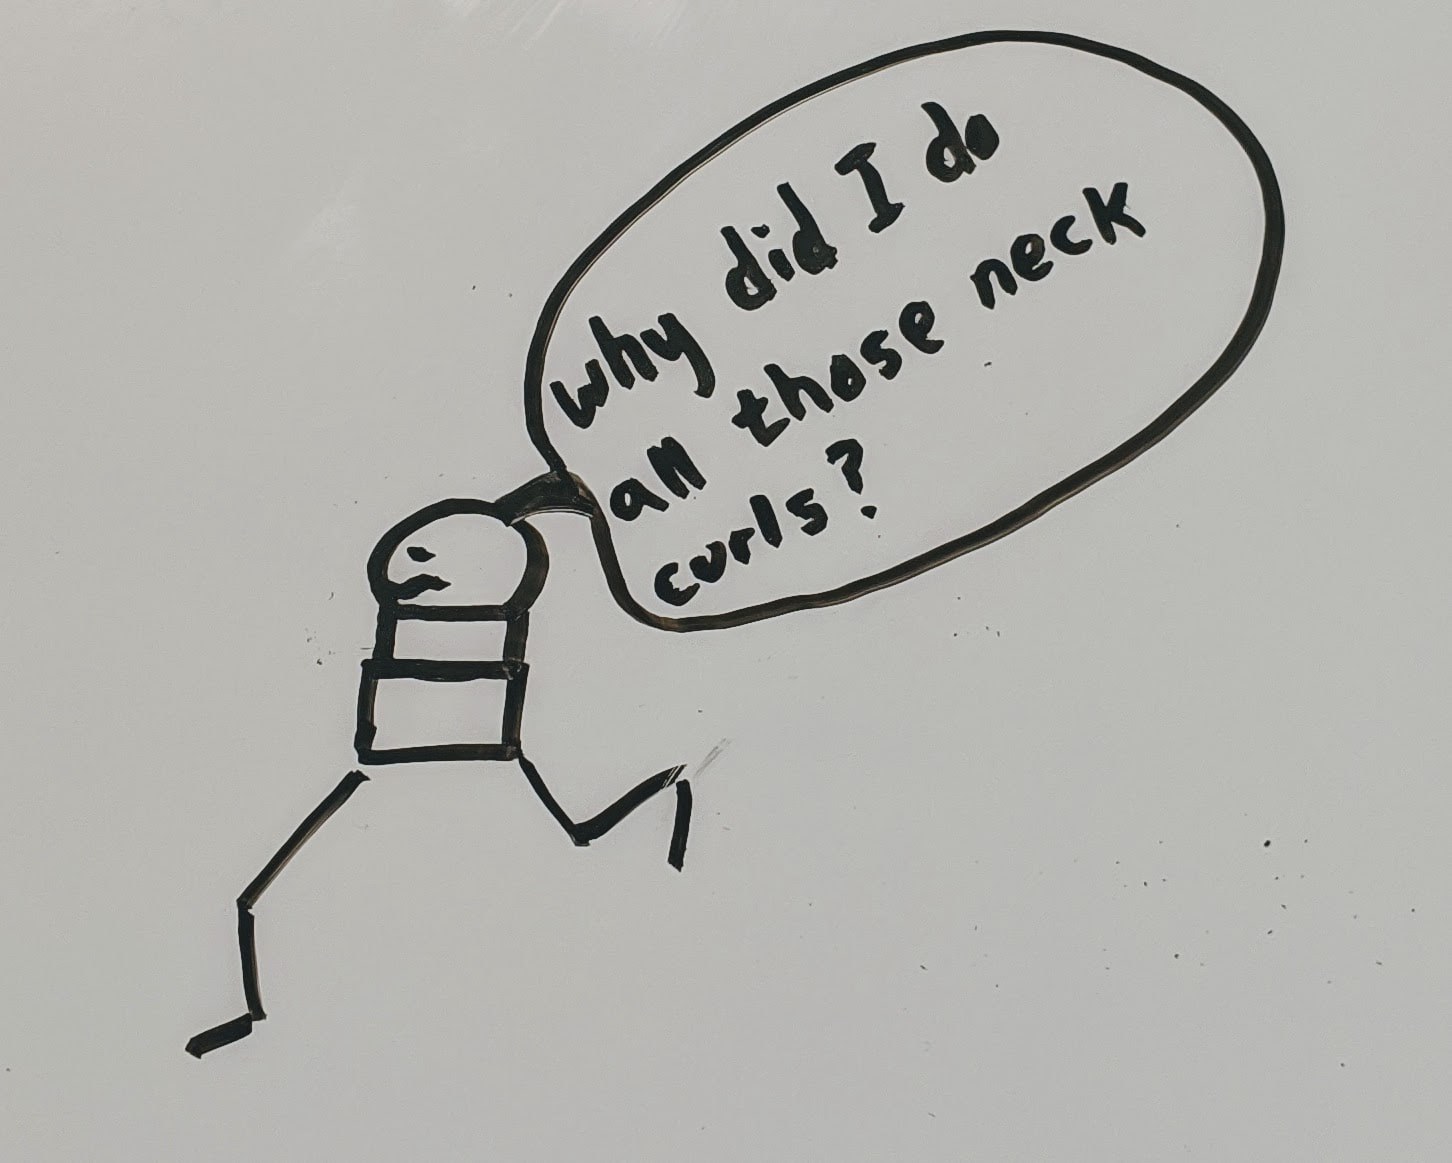 why did I do
all those neck
curls?